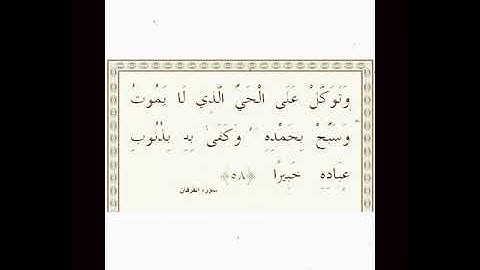 وَتَوَكَّلْ عَلَى الْحَيِّ الَّذِي لَا يَمُوتُ
وَسَبِّحْ بِحَمْدِهِ ۚ وَكَفَىٰ بِهِ بِذُنُوبِ
عِبَادِهِ خَبِيرًا ﴿٥٨﴾
سورة الفرقان